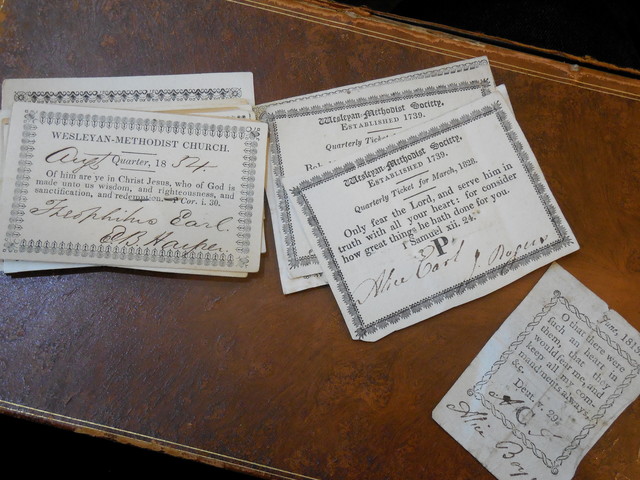 WESLEYAN-METHODIST CHURCH.
Augst Quarter, 1854.
Of him are ye in Christ Jesus, who of God is
made unto us wisdom, and righteousness, and
sanctification, and redemption. Cor. i. 30.
Theophilus Earl
Harper.
Wesleyan-Methodist Society,
ESTABLISHED 1739.
Quarterly Ticket
Wesleyan-Methodist Society,
ESTABLISHED 1739.
Quarterly Ticket for March, 1829.
Only fear the Lord, and serve him in
truth with all your heart: for consider
how great things he hath done for you.
1 Samuel xii. 24.
P
Alice Earl J Rogers
June, 181
O that there were
such an heart in
them, that they
would fear me, and
keep all my com-
mandments always,
&c.
Deut. 29.
A C
Alice